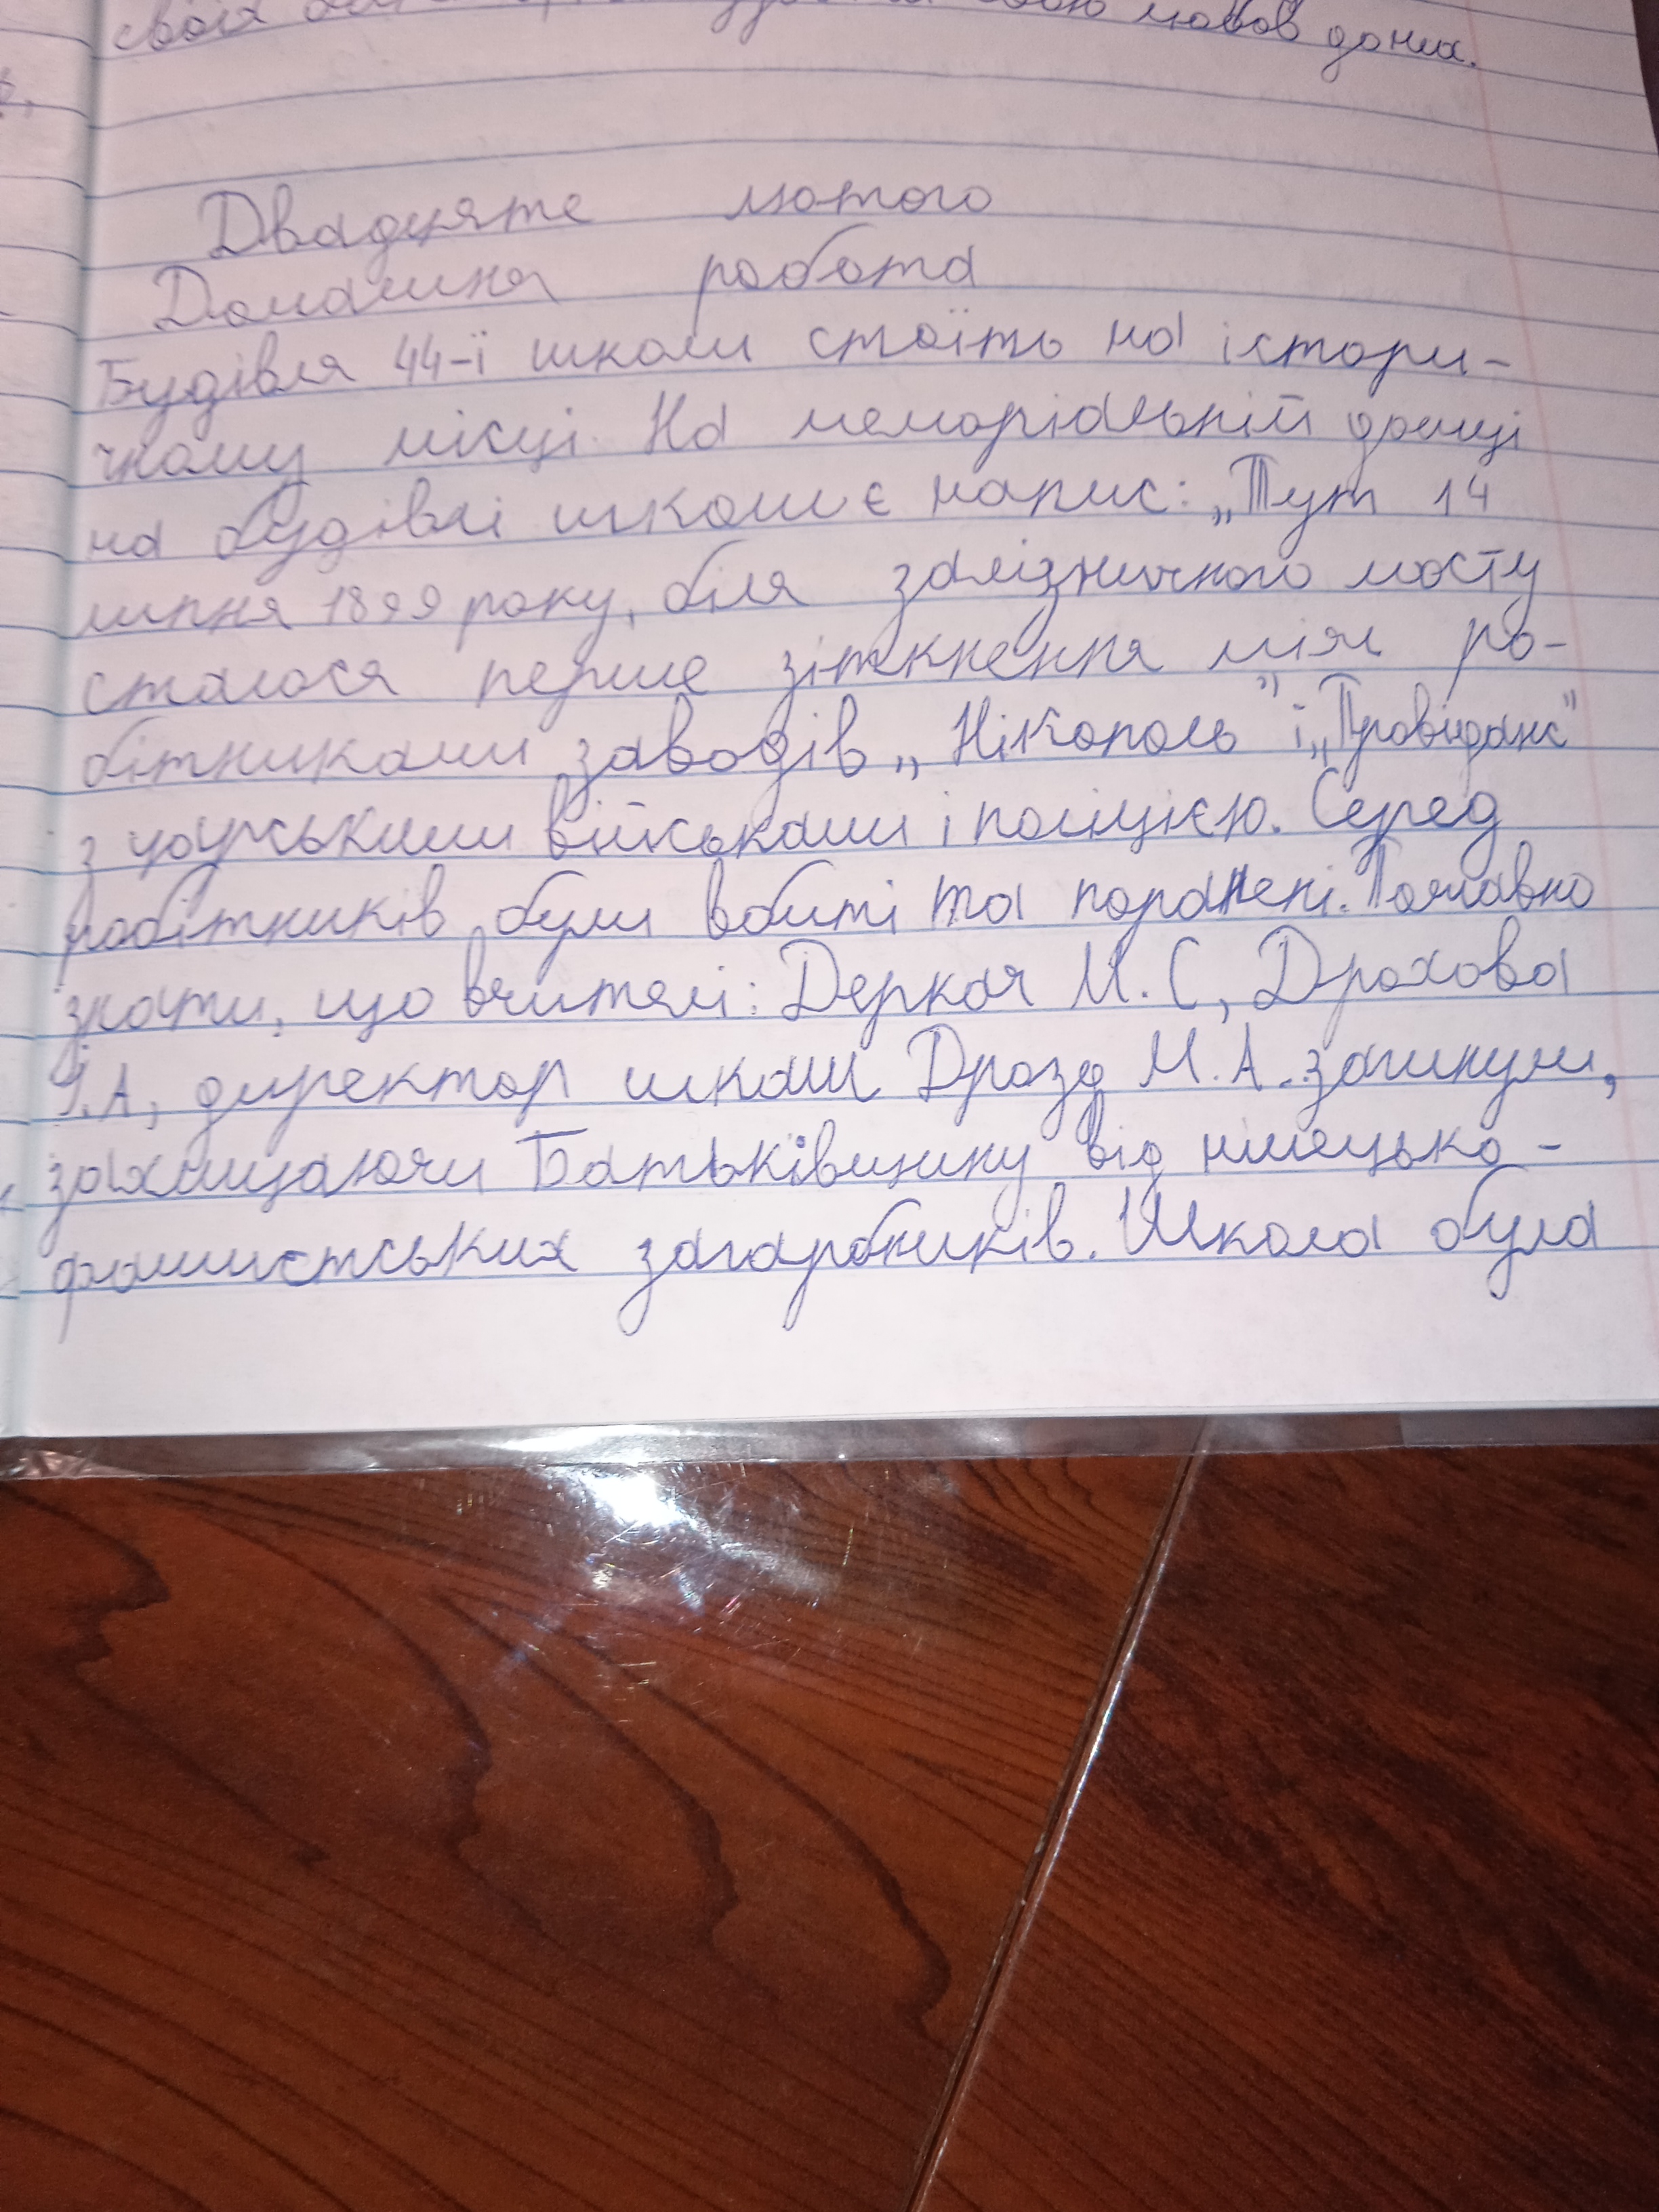 своїх
свою мовов даних.
Двадцяте лютого
Домашня робота
Будівля 44-ї школи стоїть на істори-
чному місці. На меморіальній дошці
на будівлі школи є напис: „Тут 14
липня 1899 року, біля залізничного мосту
сталося перше зіткнення між ро-
бітниками заводів „Нікополь" і „Провіданс"
з царськими військами і поліцією. Серед
робітників були вбиті та поранені. Показно
знати, що вчителі: Деркач М.С, Драхова
І.А, директор школи Дрозд М.А. загинули,
захищаючи Батьківщину від німецько-
фашистських загарбників. Школа була